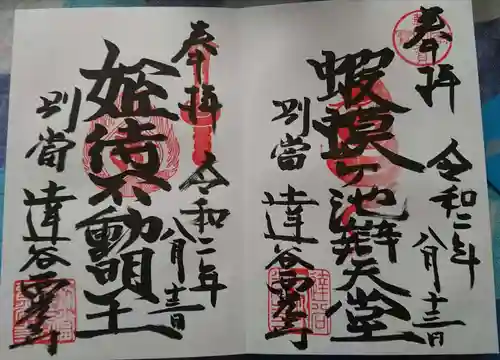 奉拝
令和二年
八月十三日
蝦蟆ヶ池辯天堂
別當
達谷窟
奉拝
令和二年
八月十三日
姫待不動明王
別當
達谷窟